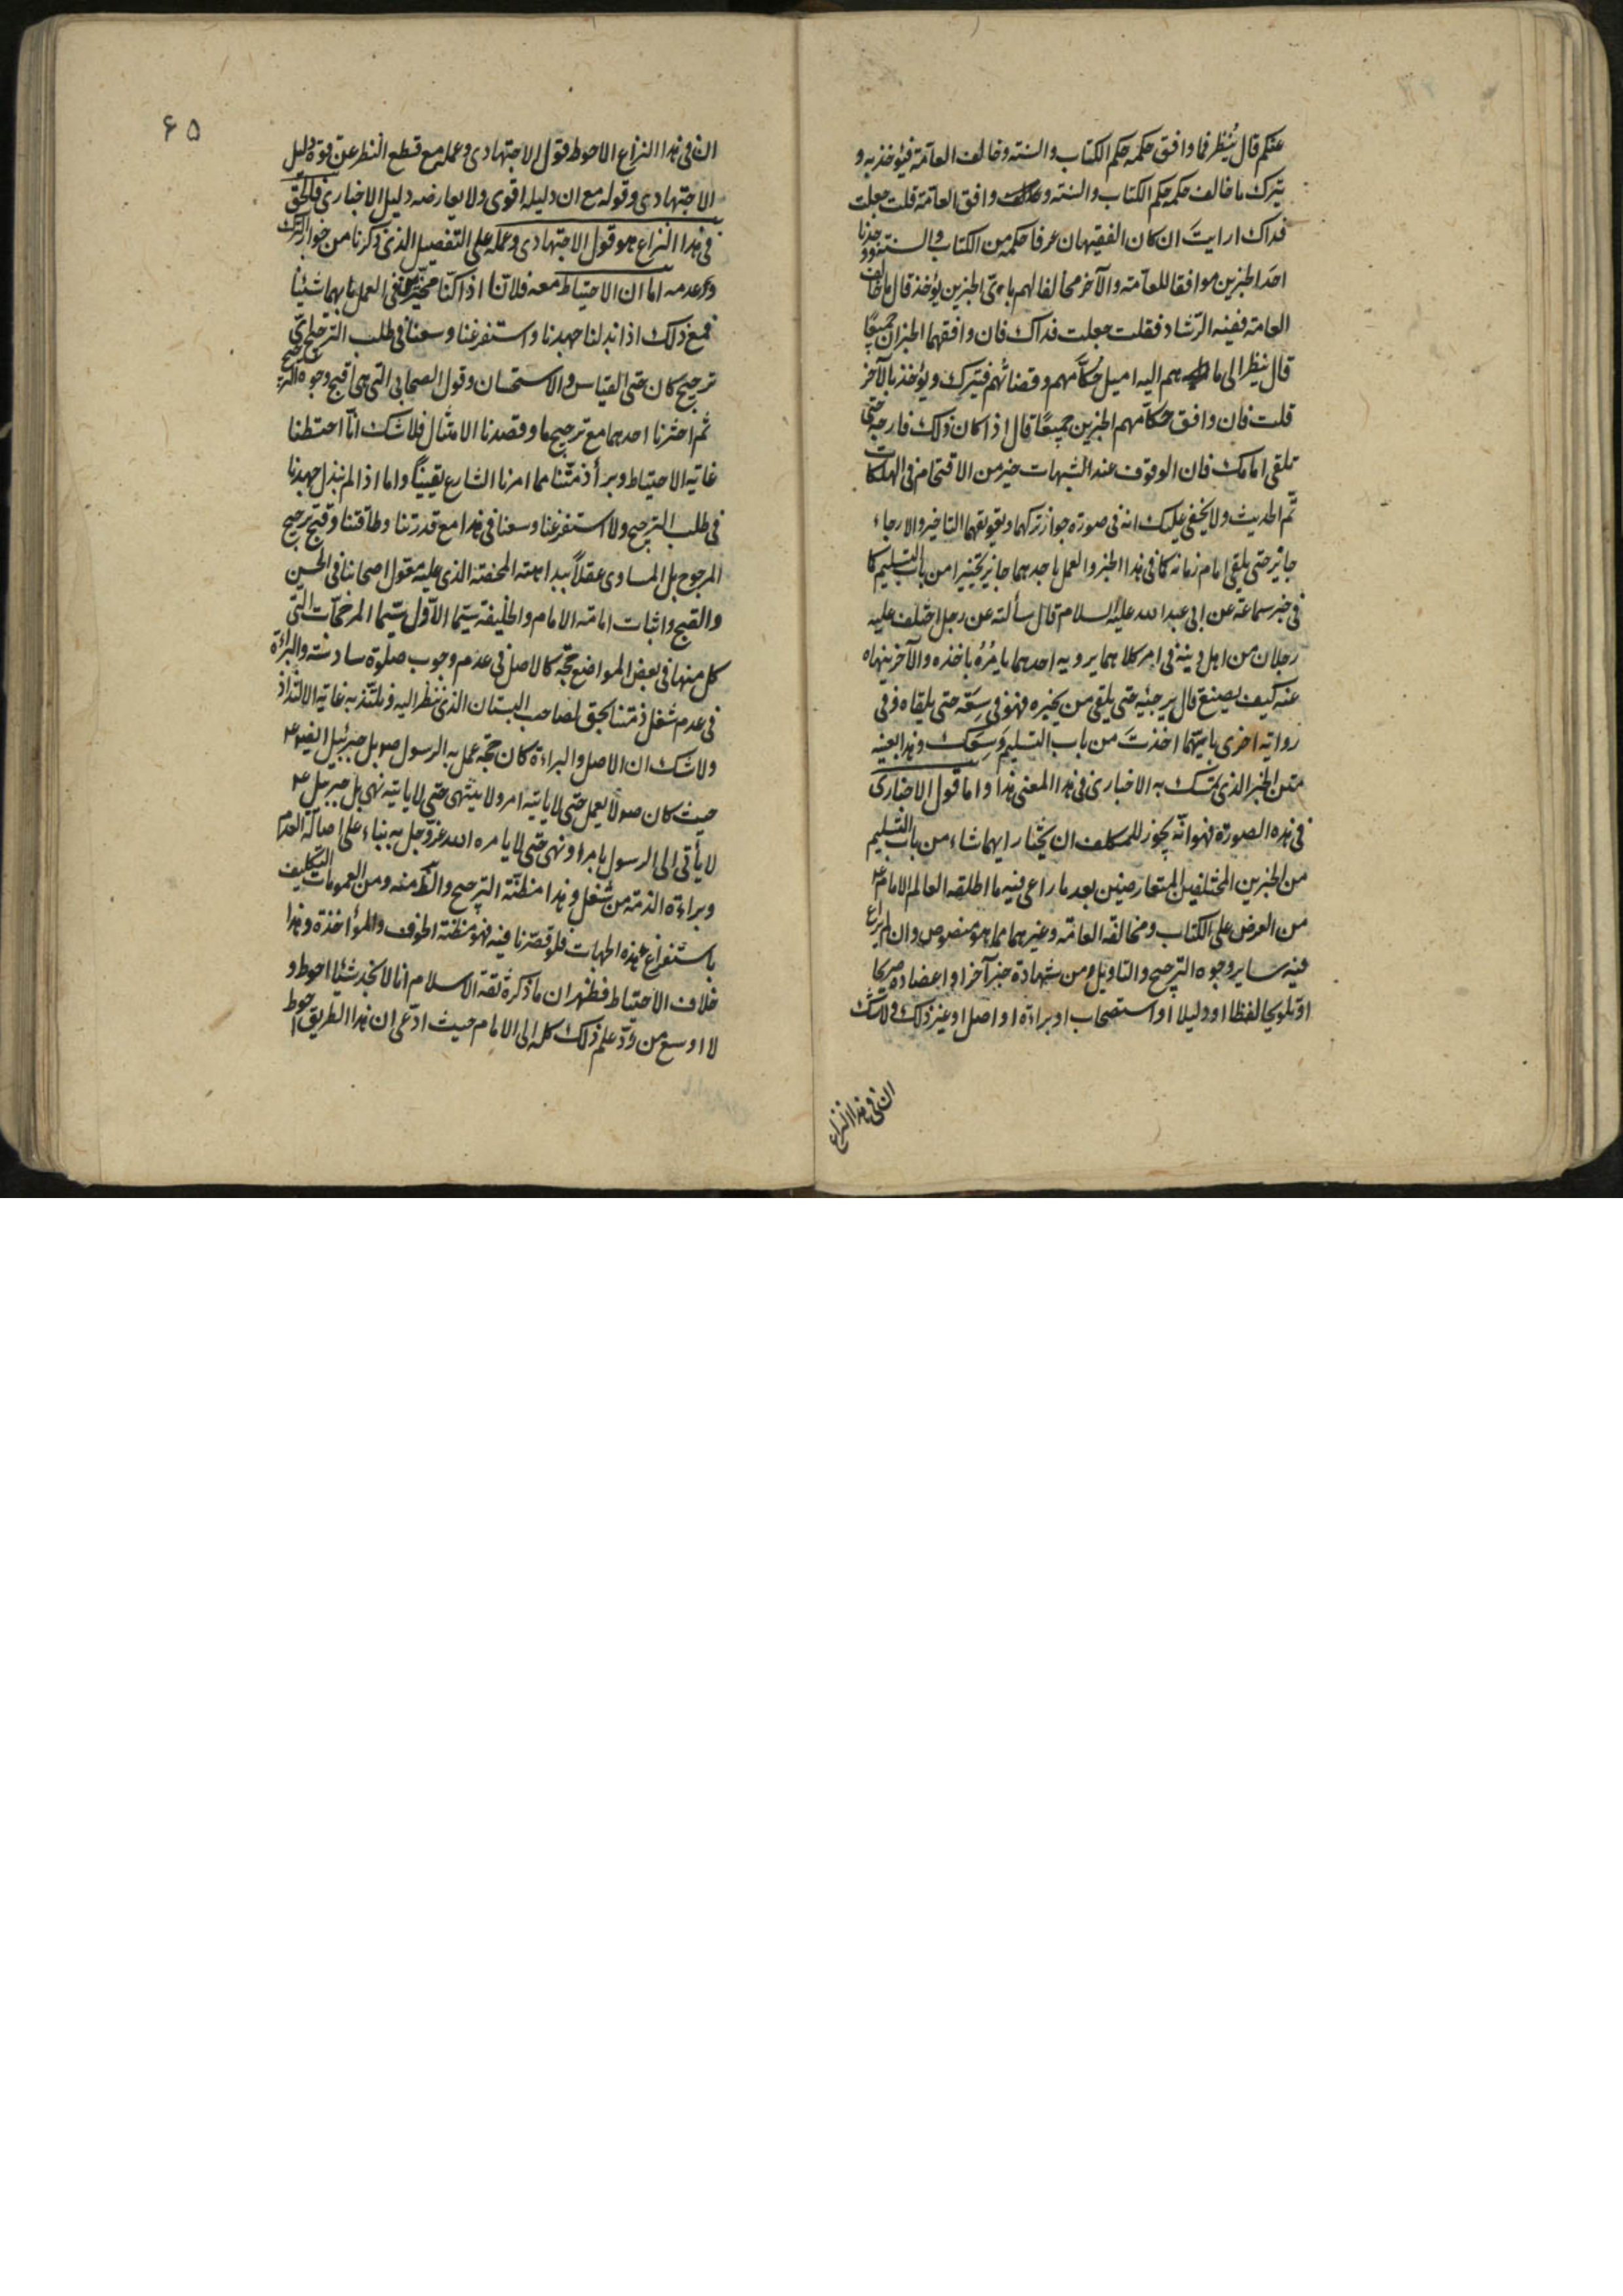 عنكم قال يُنظر فما وافق حكمه حكم الكتاب والسنة وخالف العامّة فيؤخذ به و
يترك ما خالف حكمه حكم الكتاب والسنة ووافق العامّة قلت جعلت
فداك ارايتَ ان كان الفقيهان عرفا حكمه من الكتاب والسنة ووجدنا
احَد الخبرين موافقا للعامّة والآخر مخالفا لهم باىّ الخبرين يؤخذ قال ما خالف
العامة ففيه الرّشاد فقلت جعلت فداك فان وافقهما الخبران جميعًا
قال ينظر الى ما هم اليه اميل حُكّامهم وقضاتهم فيترك ويؤخذ بالآخر
قلت فان وافق حكّامهم الخبرين جميعًا قال اذا كان ذلك فارجه حتّى
تلقى امامك فان الوقوف عند الشبهات خير من الاقتحام فى الهلكات
تم الحديث ولا يخفى عليك انه فى صورة جواز تركهما وتعويقهما التاخير والارجاء
جائز حتى يلقى امام زمانه كما فى هذا الخبر والعمل باحدهما جائز تخييرا من باب التسليم كما
فى خبر سماعة عن ابى عبد الله عليه السلام قال سألته عن رجل اختلف عليه
رجلان من اهل دينه فى امر كلاهما يرويه احدهما يامُرُه باخذه والآخر ينهاه
عنه كيف يصنع قال يرجئه حتى يلقى من يخبره فهو فى سَعَة حتى يلقاه وفى
رواية اخرى بايّهما اخذتَ من باب التسليم وَسِعَك وهذا بعينه
متن الخبر الذى تمسّك به الاخبارى فى هذا المعنى هذا واما قول الاخبارى
فى هذه الصورة فهو انّه يجوز للمكلف ان يختار ايهما شاء من باب التسليم
من الخبرين المختلفين المتعارضين بعد ما راعى فيه ما اطلقه العالم الامام ع
من العرض على الكتاب ومخالفة العامّة وغيرهما مما هو منصوص وان لم يراع
فيه ساير وجوه الترجيح والتاويل ومن شهادة خبر آخر او اعضاده صريحا
او تلويحا لفظا او دليلا او استصحاب او براءة او اصل او غير ذلك ولا شك
ان فى هذا النزاع
۶۵
ان فى هذا النزاع الاحوط قول الاجتهادى وعمله مع قطع النظر عن قوة دليل
الاجتهادى وقوله مع ان دليله اقوى ولا يعارضه دليل الاخبارى فالحق
فى هذا النزاع هو قول الاجتهادى وعمله على التفصيل الذى ذكرنا من جواز الترك
وعدمه اما ان الاحتياط معه فلانّا اذا كنّا مخيّرين فى العمل بايهما شئنا
فمع ذلك اذا بذلنا جهدنا واستفرغنا وسعنا فى طلب الترجيح اىّ
ترجيح كان حتى القياس والاستحسان وقول الصحابى التى هى اقبح وجوه الترجيح
ثم اخترنا احدهما مع ترجيح ما وقصدنا الامتثال فلا شك انّا احتطنا
غاية الاحتياط وبرأ ذمّتنا مما امرنا الشارع يقينًا واما اذا لم نبذل جهدنا
فى طلب الترجيح ولا استفرغنا وسعنا فى هذا مع قدرتنا وطاقتنا وقبح ترجيح
المرجوح بل المساوى عقلاً ببداهته المحضة الذى عليه معقول اصحابنا فى الحسن
والقبح واثبات امامة الامام والخليفة سيّما الاوّل سيّما المرجّحات التى
كل منها فى بعض المواضع حجّة كالاصل فى عدم وجوب صلوة سادسة والبراءة
فى عدم شغل ذمّتنا بحق لصاحب البستان الذى ننظر اليه ونلتذّ به غاية الالتذاذ
ولا شك ان الاصل والبراءة كان حجّة عمل به الرسول ص بل جبرئيل ايضا ع
حيث كان ص لا يعمل حتى لا ياتيه امر ولا ينتهى حتى لا ياتيه نهى بل جبرئيل ع
لا يأتى الى الرسول بامر او نهى حتى لا يامره الله عزّ وجل به بناء على اصالة العدم
وبراءة الذمّة من شغل وهذا مظنّة الترجيح والنّظر منه ومن العمومات التكليف
باستفراغ هذه الجهات فلو قصّرنا فيه فهو مظنّة الخوف والمؤاخذة وهذا
خلاف الاحتياط فظهر ان ما ذكره ثقة الاسلام انا لا نجد شئيا احوط و
لا اوسع من ردّ علم ذلك كله الى الامام حيث ادّعى ان هذا الطريق احوط